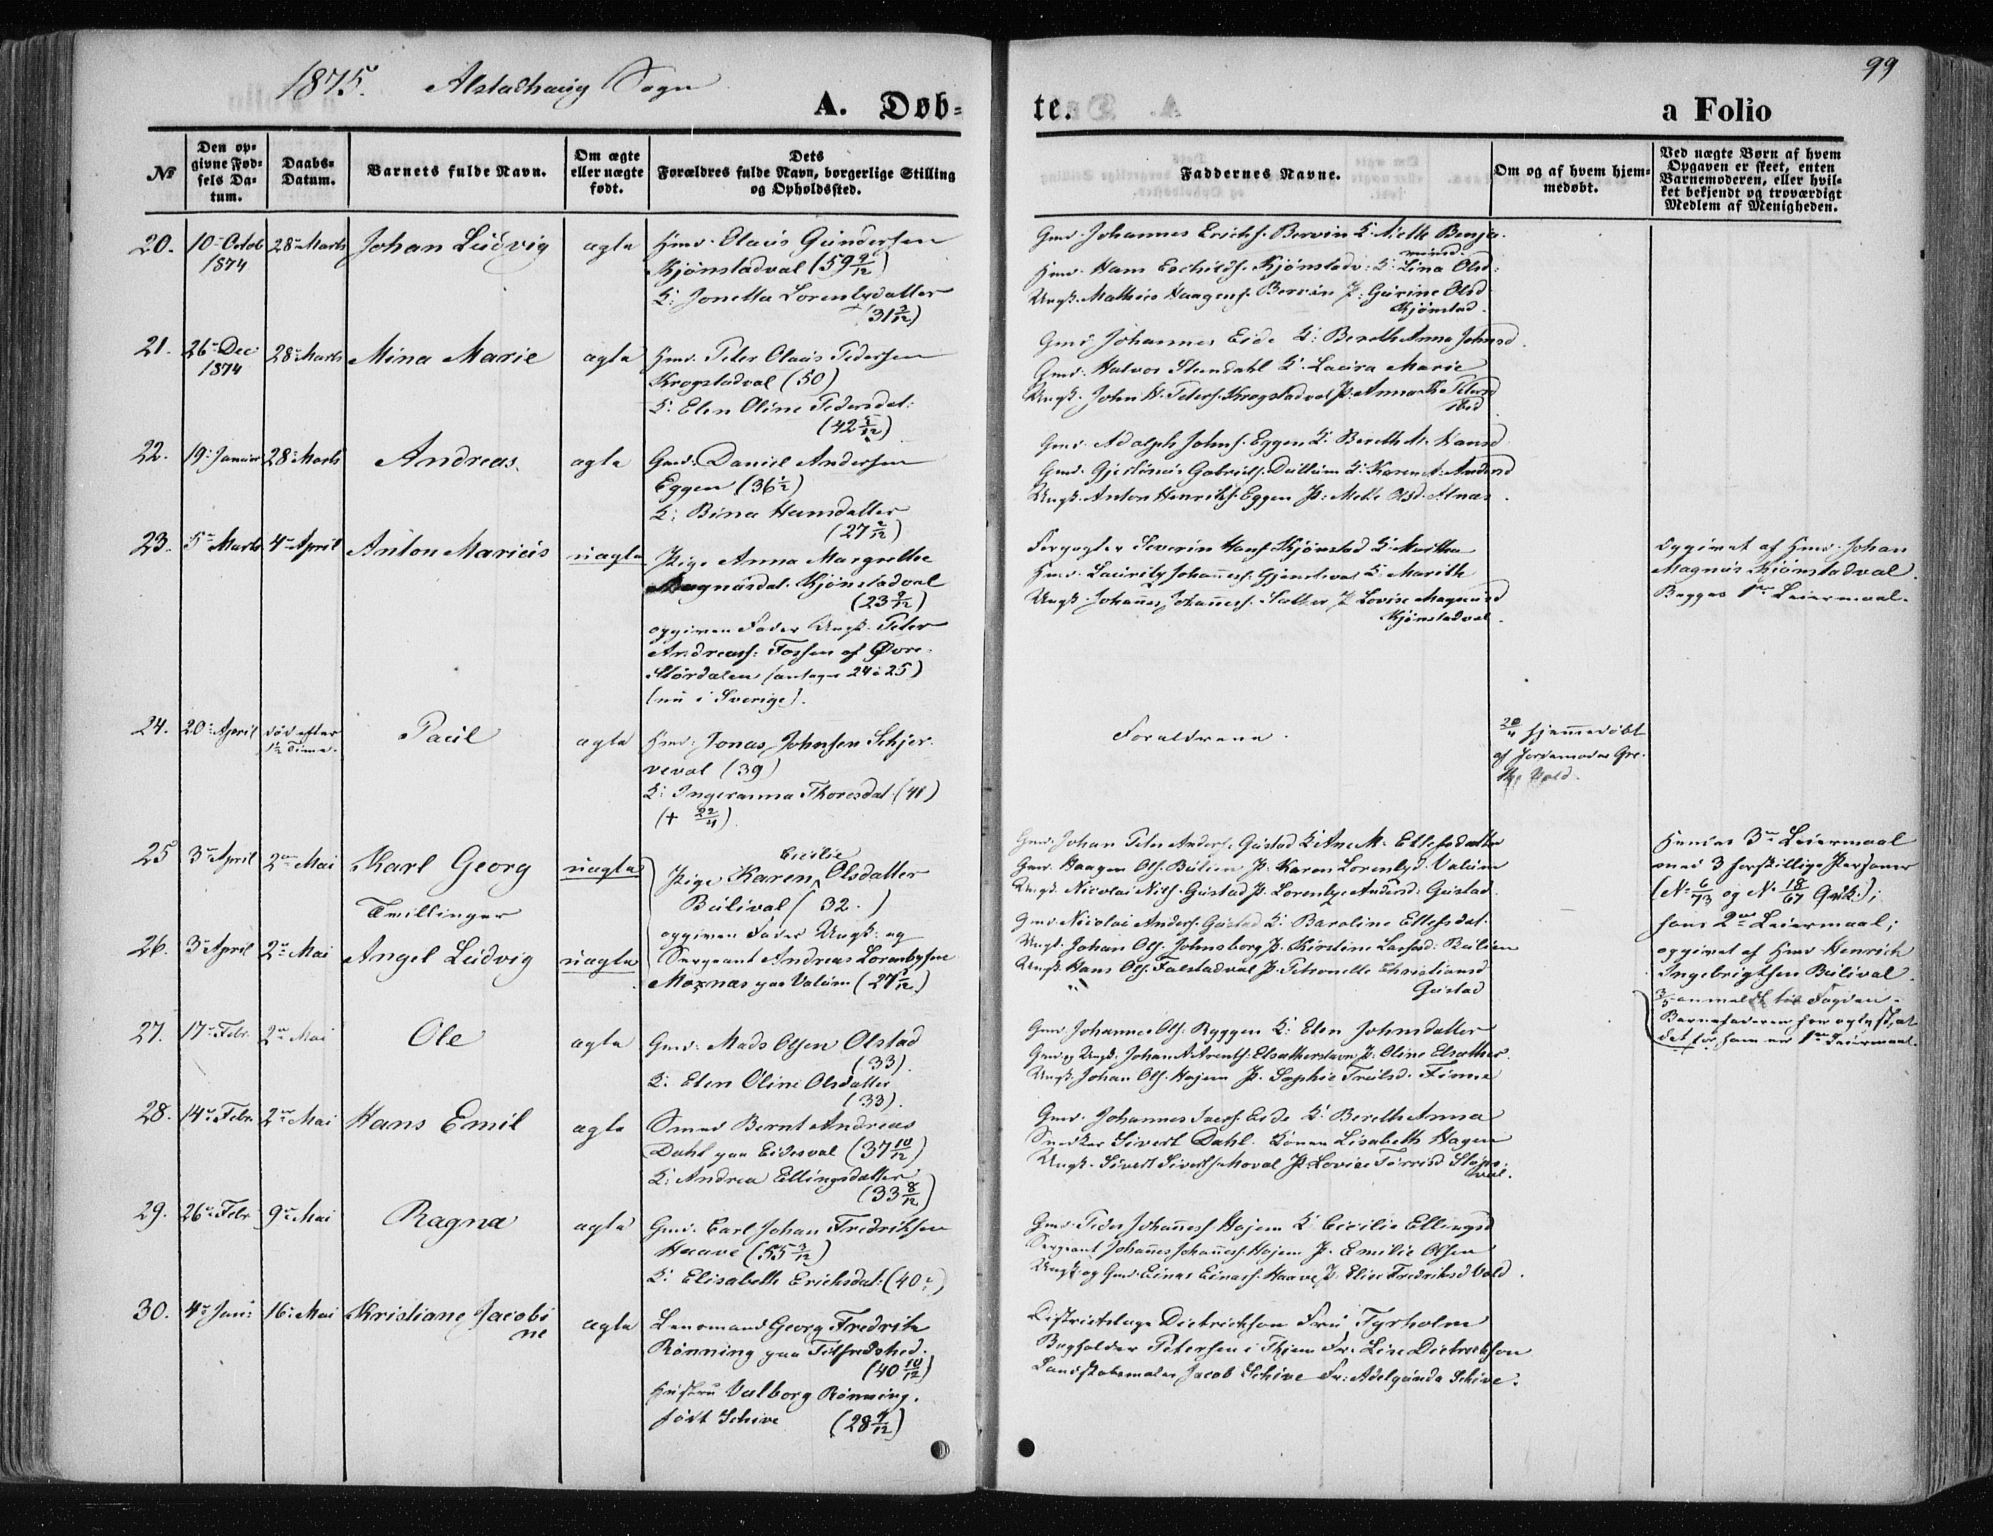 1875. Alstadhaug Sogn
99
A. Døb=
te.
a Folio
№
Den op=
givne Fød=
sels Da=
tum.
Daabs=
Datum.
Barnets fulde Navn.
Om ægte
eller uægte
født.
Dets
Forældres fulde Navn, borgerlige Stilling
og Opholdssted.
Faddernes Navne.
Om og af hvem hjem=
medøbt.
Ved uægte Børn af hvem
Opgaven er skeet, enten
Barnemoderen, eller hvil=
ket bekjendt og troværdigt
Medlem af Menigheden.
20. 10 Octob 28 Marts Johan Ludvig ægte Hmd. Elaus Gundersen
1874
Kjønstadval (59 9/12)
K: Jonetta Lorentzdatter
(31 3/12)
Gmd. Johannes Erichs. Bervin K. Meth Benja-
minsd.
Hmd. Hans Eschilds. Kjønstadv: K. Lina Olsd:
Ungk. Mathias Haagens. Bervin P: Gurine Olsd
Kjønstad.
21. 26 Dec 28 Marts Mina Marie ægte Hmd. Peter Olaus Pedersen
1874
Krogstadval (50)
K: Elen Oline Pedersdat:
(42 5/12)
Gmd Johannes Eide K: Bereth Anna Johnsd.
Gmd. Halvor Stendahl K. Laura Marie
Ungk. John P. Peters. Krogstadval P. Anna Peters
sted
22. 19 Januar 28 Marts Andreas. ægte Gmd. Daniel Andersen
Eggen (36 1/2)
K: Bina Hansdatter
(27 2/12)
Gmd Adolph Johns. Eggen K: Bereth M. Hansd
Gmd. Gjestinus Gabriels. Dullum K. Karen A: Andersd
Ungk. Anton Henriks. Eggen P: Mette Olsd. Alnas.
23. 5 Marts 4 April Anton Marius uægte Pige Anna Margrethe
Magnusdat. Kjønstadval
(23 9/12)
opgiven Fader Ungk. Peter
Andreass: Fossen af Øvre
Størdalen (antages 24 à 25)
(nu i Sverige).
Forpagter Severin Hans. Kjønstad K. Martha
Hmd. Lauritz Johanes. Gjenstval K. Marith
Ungk. Johanes Johanes. Salter P Lovise Magnusd
Kjønstadval.
Opgivet af Hmd. Johan
Magnus Kjønstadval.
Begges 1ste Leiermaal.
24. 20 April død efter Paul ægte Hmd: Jonas Johnsen Skjer-
1 1/2 Time.
veval (39)
K: Ingeranna Thoresdat. (41)
(+ 22/4)
Forældrene.
20/4 hjemmedøbt
af Jordemoder Gre-
the Vold.
25 3 April 2den Mai Karl Georg uægte Pige Karen Cecilie Olsdatter
Tvillinger
Bulival (32.)
opgiven Fader Ungk: og
Gmd. Johan Peter Anders. Gustad K Ane M. Ellefsdatter
Gmd. Haagen Ols. Bulien P: Karen Lorentzd. Valum
Ungk. Nicolai Nils. Gustad P. Lorentze Andersd. Gustad.
Hendes 3die Leiermaal
med 3 forskillige Personer
(N. 6/73 og N. 18/67);
hans 2det Leiermaal;
26. 3 April 2 Mai Angel Ludvig uægte Sergeant Andreas Lorentzsen
Moxnas paa Valum (27 5/12)
Gmd Nicolai Anders. Gustad K: Baroline Ellefsdat.
Ungk. Johan Ols. Johnsborg P. Kirstine Larsd: Bulien
Ungk Hans Ols. Falstadval P. Petronelle Christiansd
Gustad
opgivet af Hmd Henrich
Ingebrigtsen Bulival.
3/5 anmeldt til Fogden.
Barnefaderen har oplyst, at
det for ham er 1ste Leiermaal.
27. 17 Febr. 2 Mai Ole ægte Gmd. Mads Olsen Olstad
(33).
K: Elen Oline Olsdatter
(33).
Gmd. Johannes Ols. Byggen K: Elen Johnsdatter
Gmd og Ungk. Johan A. Arents. Elsatherstavn P. Oline Elsather.
Ungk. Johan Ols. Hojem P. Sophie Troelsd. Finne
28. 14 Febr. 2 Mai Hans Emil ægte Smed Bernt Andreas
Dahl paa Eidesval (37 10/12)
K. Andrea Ellingsdatter
(33 8/12)
Gmd. Johannes Ivers. Eide K. Bereth Anna
Snedker Sivert Dahl. Konen Lisabeth Hagen
Ungk. Sivert Siverts. Moval P. Lovise
29. 26 Febr 9 Mai Ragna ægte Gmd. Carl Johan Fredriksen
Haave (55 3/12)
K. Elisabeth Erichsdat. (40)
Gmd. Peder Johanes. Hojem K. Cecilie Ellingsd
Sergeant Johanes Johanes. Hojem P. Emilie Olsen
Ungk og Gmd. Einar Einars. Haave P. Elise Fredriksd Vold.
30. 4 Jan: 16 Mai Kristiane Jacobi ægte Lensmand Georg Fredrik
ne
Rønning paa Tilfredshed.
(40 10/12)
Hustru Valborg Rønning.
født Schive (28 9/12)
Districtslæge Dietrickson Fru Tyrholm
Bogholder Petersen i Thjem Fr. Lise Dietrichson
Landskabsmaler Jacob Schive Fr: Adelgunda Schive.